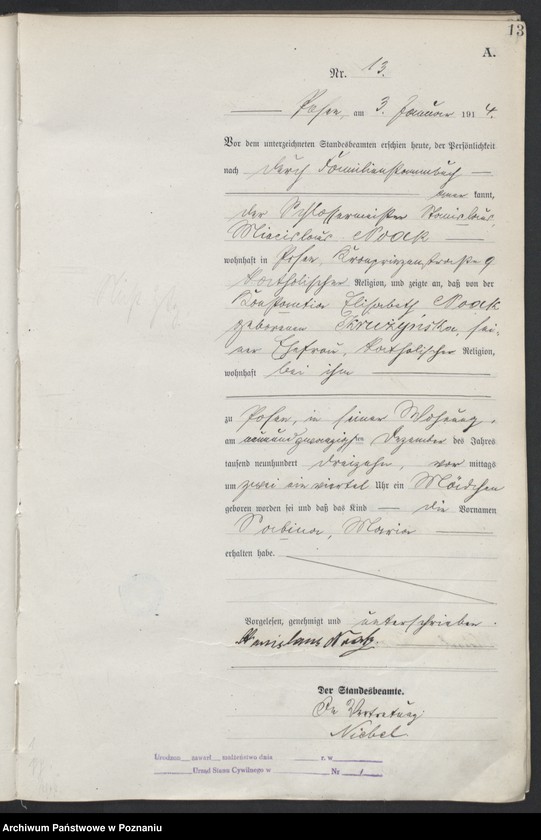 13
A.
Nr. 13.
Posen, am 3. Januar 1914.
Vor dem unterzeichneten Standesbeamten erschien heute, der Persönlichkeit
nach durch Familienstammbuch
kannt,
der Schlossermeister Stanislaus,
Miecislaus Noak
wohnhaft in Posen, Kronprinzenstraße 9
katholischer Religion, und zeigte an, daß von der
Elisabeth Noak
geborenen Skruzyńska, sei-
ner Ehefrau, katholischer Religion,
wohnhaft bei ihm
zu Posen, in seiner Wohnung,
am neunundzwanzigsten Dezember des Jahres
tausend neunhundert dreizehn, vor mittags
um zwei ein viertel Uhr ein Mädchen
geboren worden sei und daß das Kind die Vornamen
Sabina, Maria
erhalten habe.
Vorgelesen, genehmigt und unterschrieben.
Stanislaus Noak
Der Standesbeamte.
In Vertretung
Niebel
Urodzon zawarł małżeństwo dnia r. w
Urząd Stanu Cywilnego w Nr
Archiwum Państwowe w Poznaniu